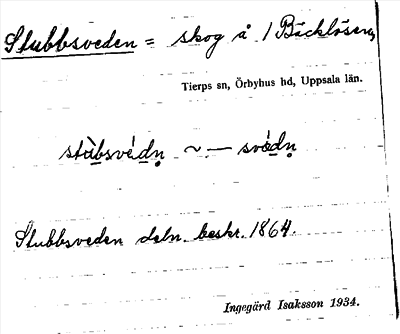 Stubbsveden = skog å 1 Bäcklösen,
Tierps sn, Örbyhus hd, Uppsala län.
stùbsvédn ~ — svédn
Stubbsveden deln. beskr. 1864.
Ingegärd Isaksson 1934.